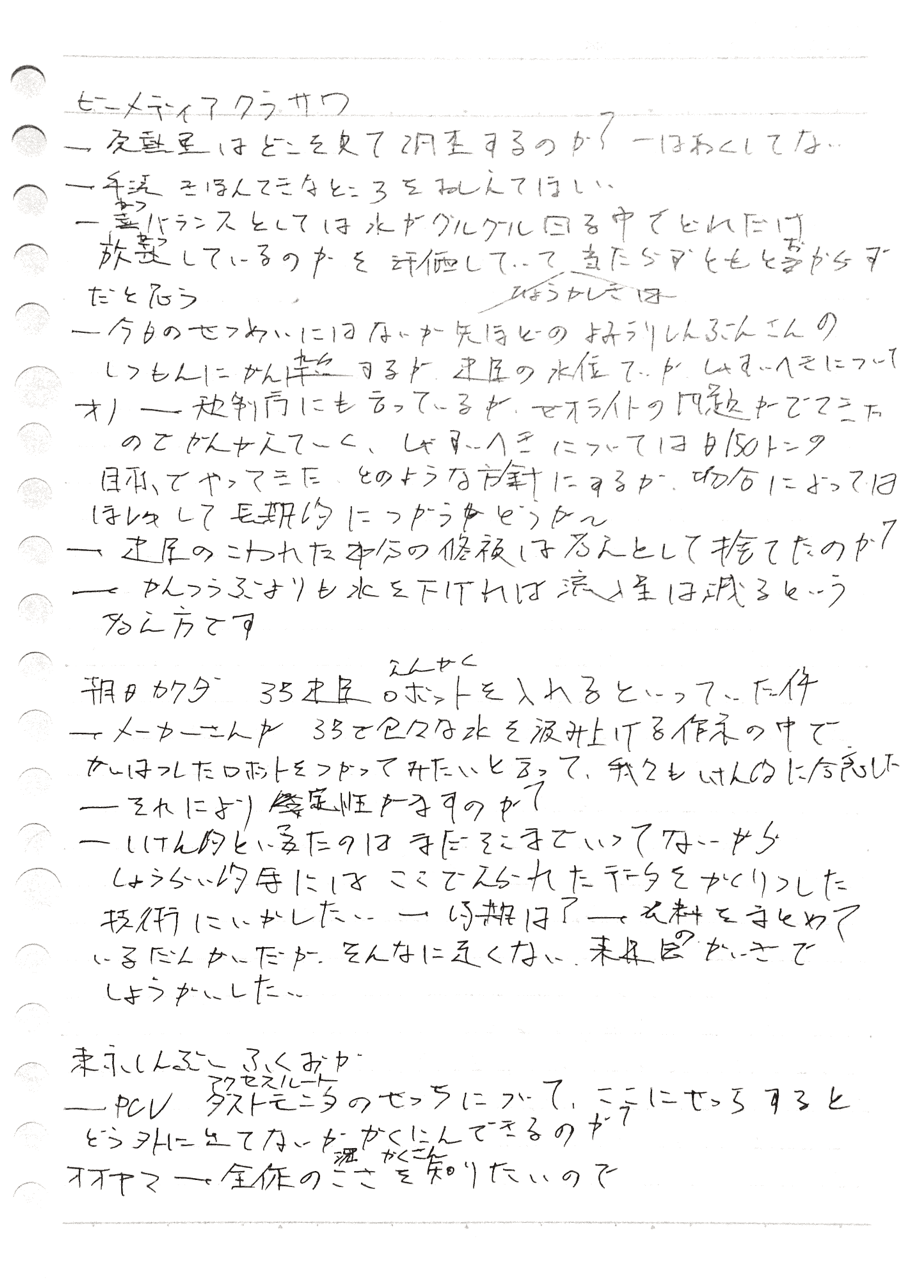 ビーメディアクラサワ
― 発熱量はどこを見て調査するのか? ―はあくしてない
― 手法 きほんてきなところをおしえてほしい
― 熱バランスとしては水がグルグル回る中でどれだけ
ねつ
放熱しているのかを評価していて 当たらずともとおからず
ねつ
お
だと思う ひょうかしきは
― 今日のせつめいにはないが先ほどのよみうりしんぶんさんの
しつもんにかんれんするが 建屋の水位ていか しゃすいへきについて
オノ ― 規制庁にも言っているが、ゼオライトの問題がでてきた
のでかんがえていく、しゃすいへきについては日150トンの
目標でやってきた どのような方針にするか、場合によっては
ほしゅして長期的につかうかどうか〜
― 建屋のこわれた部分の修復は考えとして捨てたのか?
― かんつうぶよりも水を下げれば流入量は減るという
考え方です
朝日カワダ 3S建屋 ロボットを入れるといっていた件
えんかく
― メーカーさんが 3Sで色々な水を汲み上げる作業の中で
かいはつしたロボットをつかってみたいと言って、我々もじっけん的に合意した
― それにより 安定性がますのか?
― じっけん的といったのはまだそこまでいってないから
しょうらい的にはここでえられたデータをかくりつした
技術にいかしたい ― 時期は? ― 資料をまとめて
いるだんかいだが、そんなに遠くない、来月のかいぎで
しょうかいしたい
東京しんぶん ふくおか
アクセスルート
― PCV ダストモニタのせっちについて、ここにせっちすると
どう外に出てないかかくにんできるのか?
オオヤマ ― 全体のこさを知りたいので
濃 かくさん